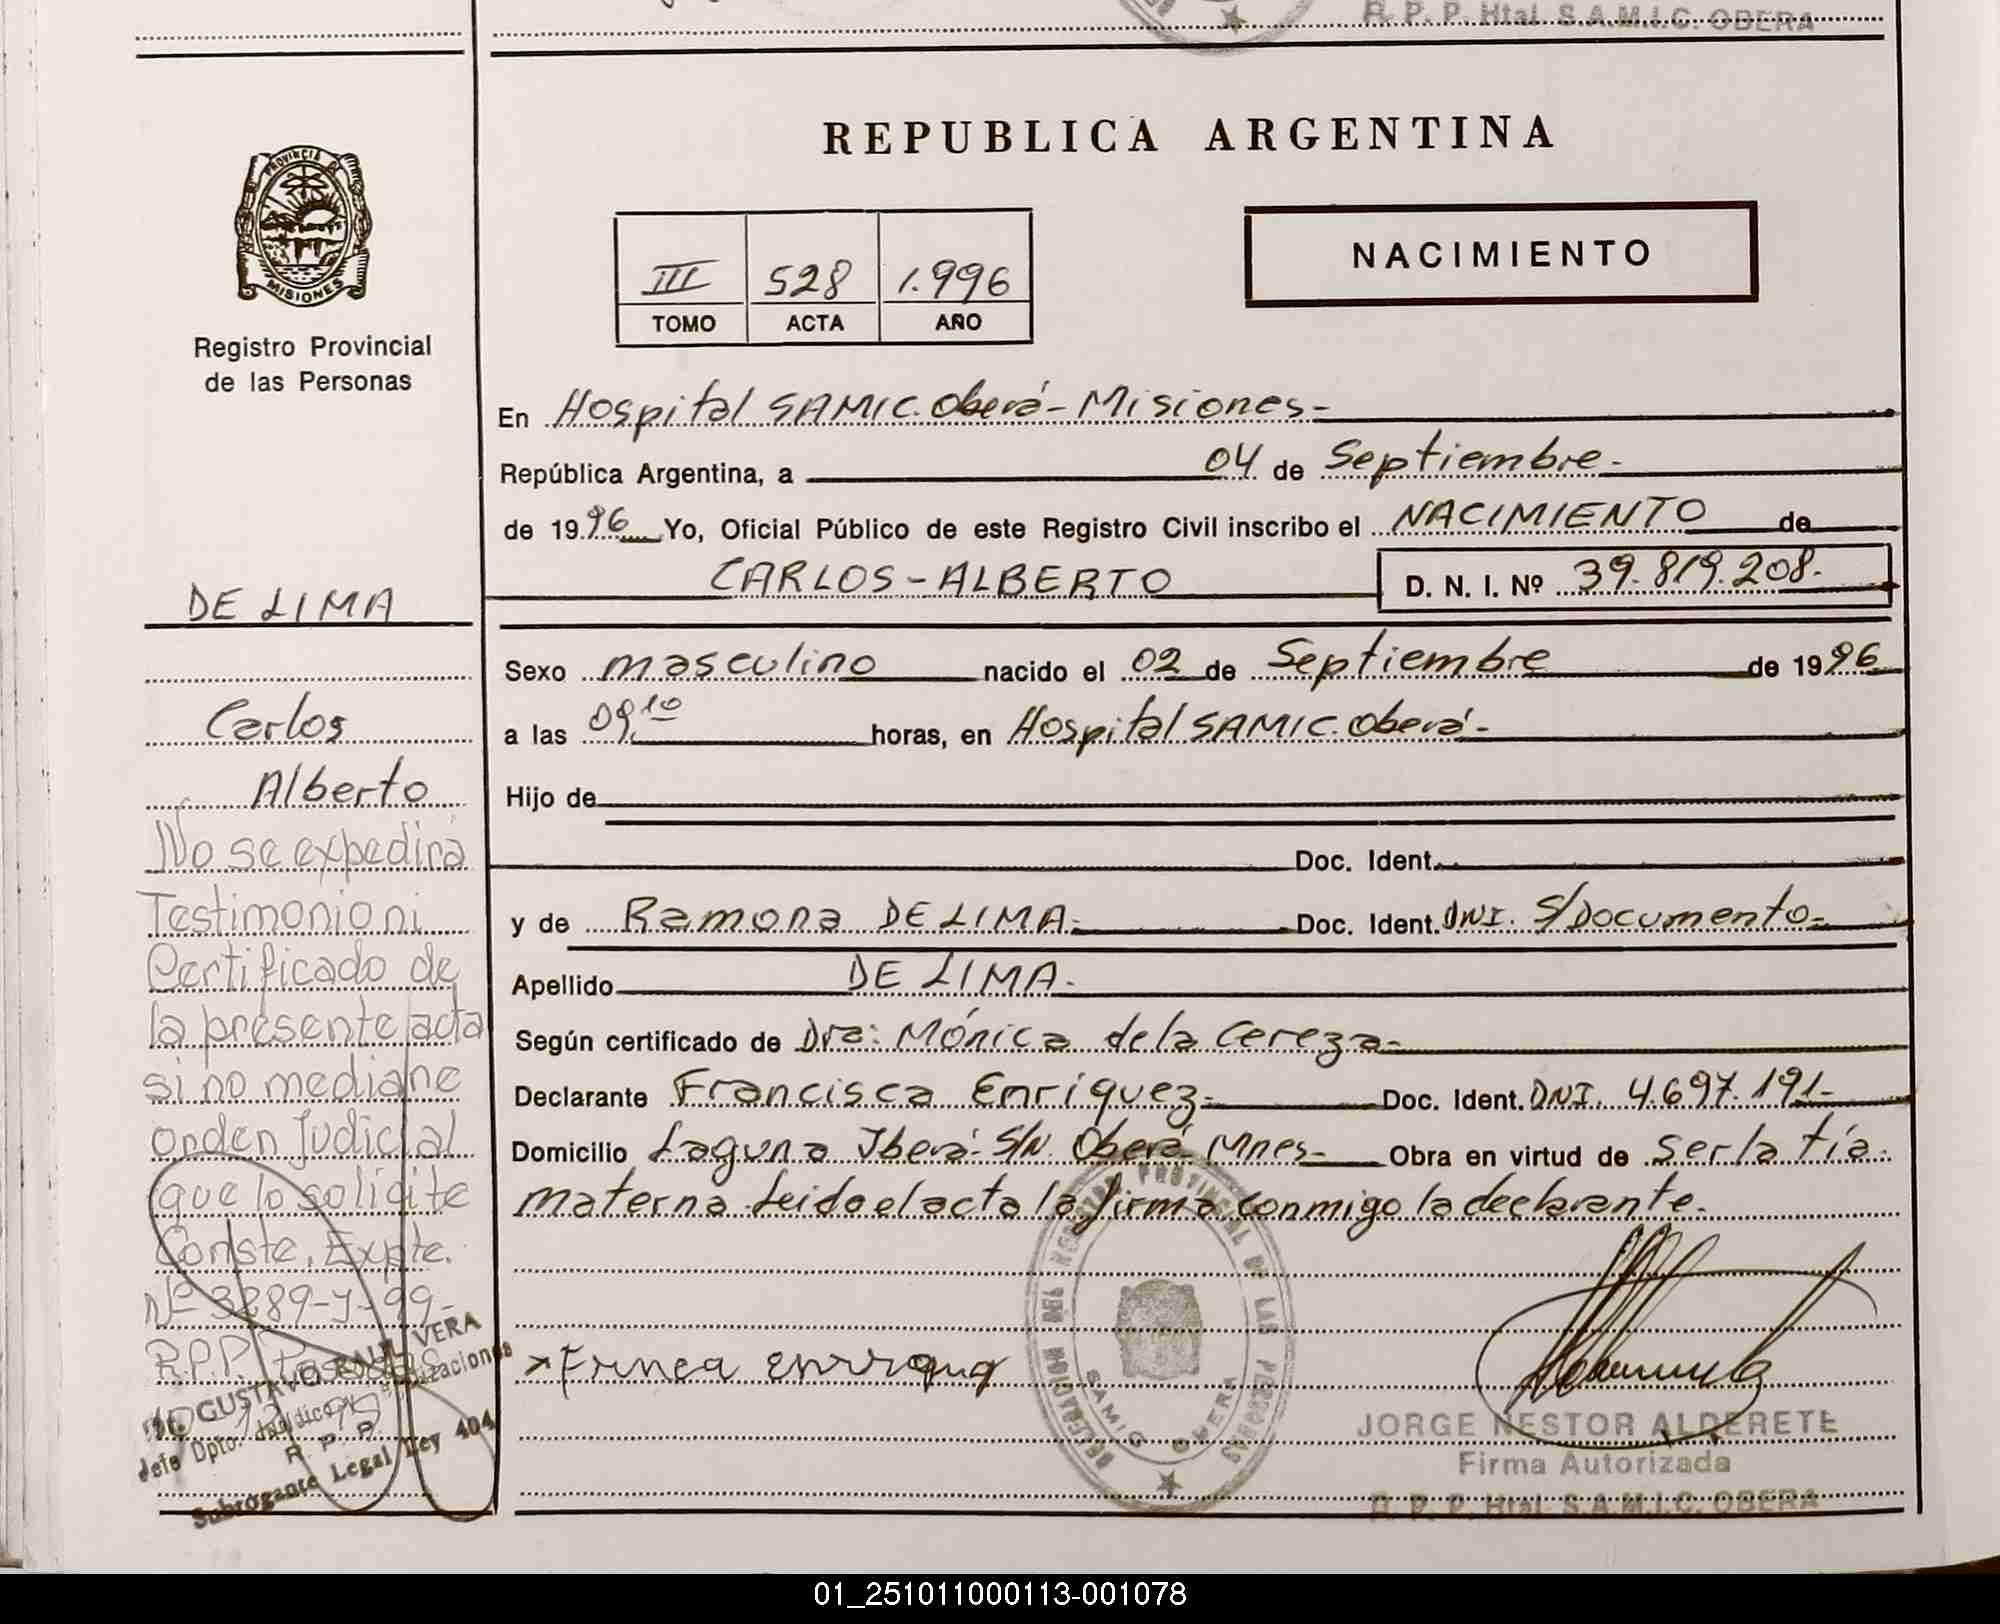 R. P. P. Htal. S.A.M.I.C. OBERA
REPUBLICA ARGENTINA
PROVINCIA DE
MISIONES
Registro Provincial
de las Personas
III 528 1.996
TOMO ACTA AÑO
NACIMIENTO
En Hospital SAMIC. Oberá - Misiones -
República Argentina, a 04 de Septiembre -
de 1996 Yo, Oficial Público de este Registro Civil inscribo el NACIMIENTO de
CARLOS - ALBERTO D. N. I. Nº 39.819.208.
Sexo masculino nacido el 02 de Septiembre de 1996
a las 09,10 horas, en Hospital SAMIC. Oberá -
Hijo de
Doc. Ident.
y de Ramona DE LIMA. Doc. Ident. DNI. S/Documento -
Apellido DE LIMA.
Según certificado de Dra: Mónica de la Cereza -
Declarante Francisca Enríquez - Doc. Ident. DNI. 4.697.191 -
Domicilio Laguna Iberá - S/N. Oberá Mnes - Obra en virtud de ser la tía
materna Leido el acta la firma conmigo la declarante.
DE LIMA
Carlos
Alberto
No se expedirá
Testimonio ni
Certificado de
la presente acta
si no mediane
orden Judicial
que lo solicite
Conste. Expte.
Nº 3289-Y-99-
R.P.P. Posadas
GUSTAVO RAUL VERA
Jefe Dpto. Jurídico
R. P. P.
Subrogante Legal Ley 404
DELEGACION DEL REGISTRO PROVINCIAL DE LAS PERSONAS
SAMIC OBERA
JORGE NESTOR ALDERETE
Firma Autorizada
R. P. P. Htal. S.A.M.I.C. OBERA
01_251011000113-001078